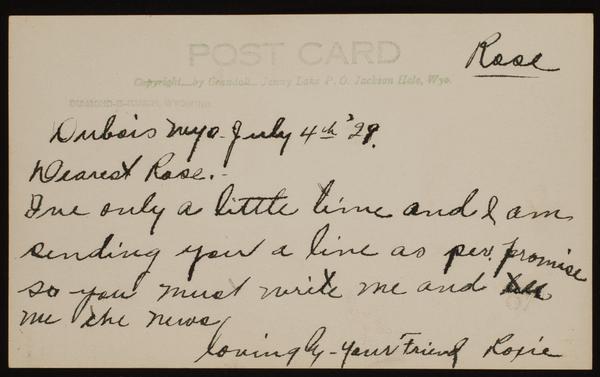 POST CARD
Rose
Copyright by Crandall Jenny Lake P. O. Jackson Hole, Wyo.
Dubois Wyo - July 4th '29.
Dearest Rose. -
I've only a little time and I am
sending you a line as per. promise
so you must write me and tell
me the news
Lovingly - Your Friend Roxie